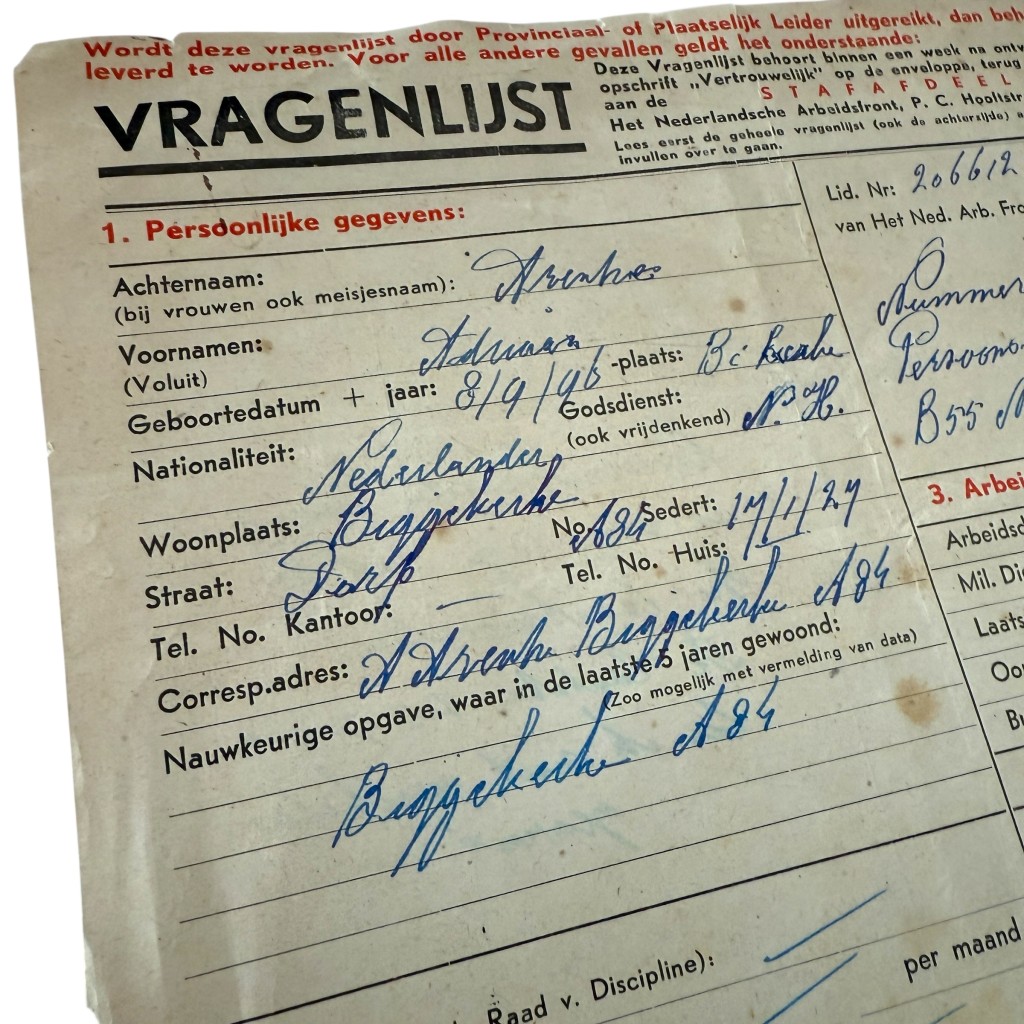 Wordt deze vragenlijst door Provinciaal- of Plaatselijk Leider uitgereikt, dan beh
leverd te worden. Voor alle andere gevallen geldt het onderstaande:
VRAGENLIJST
Deze Vragenlijst behoort binnen een week na ontv
opschrift „Vertrouwelijk” op de enveloppe, terug
aan de STAFAFDEEL
Het Nederlandsche Arbeidsfront, P. C. Hooftstr
Lees eerst de geheele vragenlijst (ook de achterzijde) a
invullen over te gaan.
1. Persoonlijke gegevens:
Achternaam:
(bij vrouwen ook meisjesnaam):
Voornamen: Adriaan
(Voluit)
Geboortedatum + jaar: 8/9/96 -plaats:
Nationaliteit: Nederlander
Godsdienst: N.H.
(ook vrijdenkend)
Woonplaats: Biggekerke
Straat: Dorp No. A84 Sedert: 17/1/27
Tel. No. Kantoor: — Tel. No. Huis:
Corresp.adres: A Biggekerke A84
Nauwkeurige opgave, waar in de laatste 5 jaren gewoond:
(Zoo mogelijk met vermelding van data)
Biggekerke A84
Raad v. Discipline):
per maand
Lid. Nr: 206612
van Het Ned. Arb. Fro
Nummer
Persoons
B55 N
3. Arbei
Arbeidsd
Mil. Die
Laats
Oor
Bu